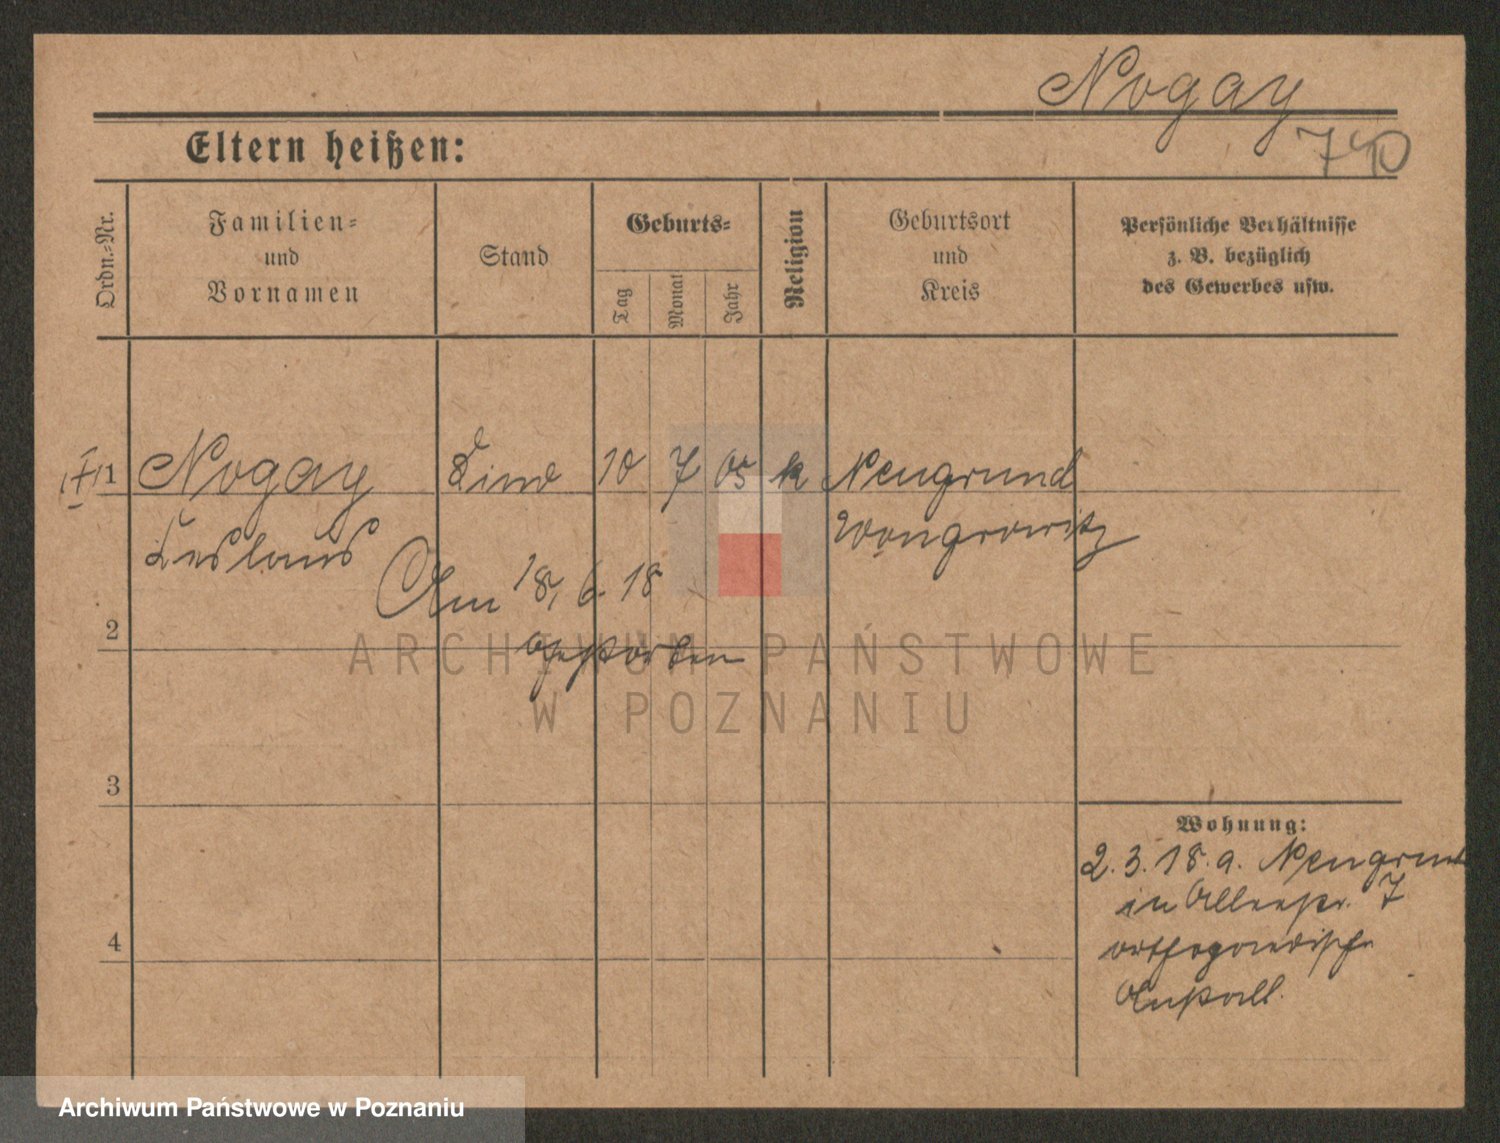 Nogay
740
Eltern heißen:
Ordn.-Nr.
Familien-
und
Vornamen
Stand
Geburts-
Tag
Monat
Jahr
Religion
Geburtsort
und
Kreis
Persönliche Verhältnisse
z. B. bezüglich
des Gewerbes usw.
1 Nogay Kind 10 7 05 k Neugrund
Wongrowitz
Am 18, 6. 18
gestorben
2
3
4
Wohnung:
2. 3. 18. a. Neugrund
in Alleestr. 7
orthopaedische
Anstalt.
ARCHIWUM PAŃSTWOWE
W POZNANIU
Archiwum Państwowe w Poznaniu